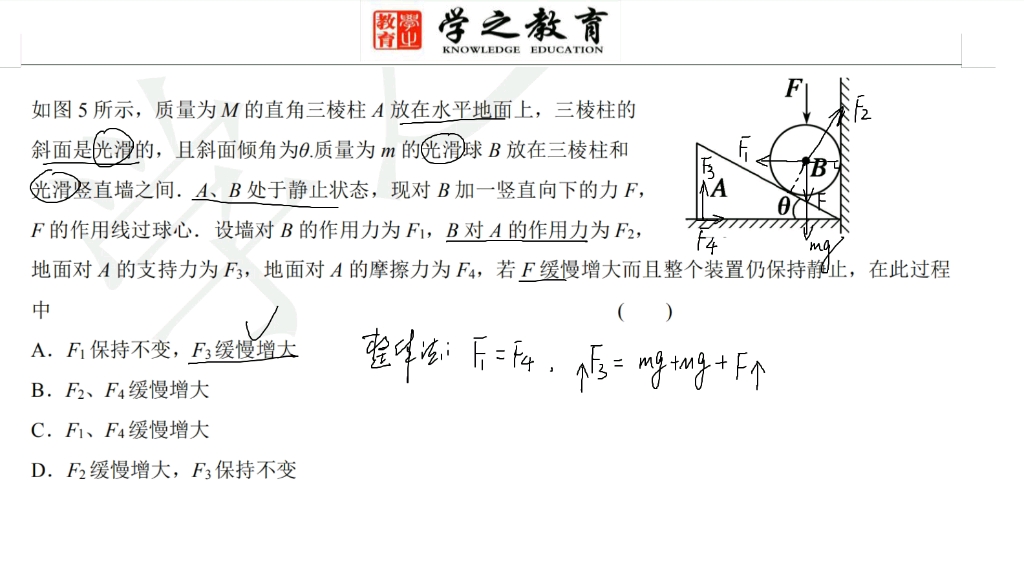 教育 學之 学之教育
KNOWLEDGE EDUCATION
如图 5 所示，质量为 M 的直角三棱柱 A 放在水平地面上，三棱柱的
斜面是光滑的，且斜面倾角为θ.质量为 m 的光滑球 B 放在三棱柱和
光滑竖直墙之间．A、B 处于静止状态，现对 B 加一竖直向下的力 F，
F 的作用线过球心．设墙对 B 的作用力为 F₁，B 对 A 的作用力为 F₂，
地面对 A 的支持力为 F₃，地面对 A 的摩擦力为 F₄，若 F 缓慢增大而且整个装置仍保持静止，在此过程
中 （ ）
A．F₁ 保持不变，F₃ 缓慢增大
B．F₂、F₄ 缓慢增大
C．F₁、F₄ 缓慢增大
D．F₂ 缓慢增大，F₃ 保持不变
F
F₂
F₁
B
F₃
A
F
θ
F₄
mg
整体法: F₁=F₄, ↑F₃= mg+mg+F↑